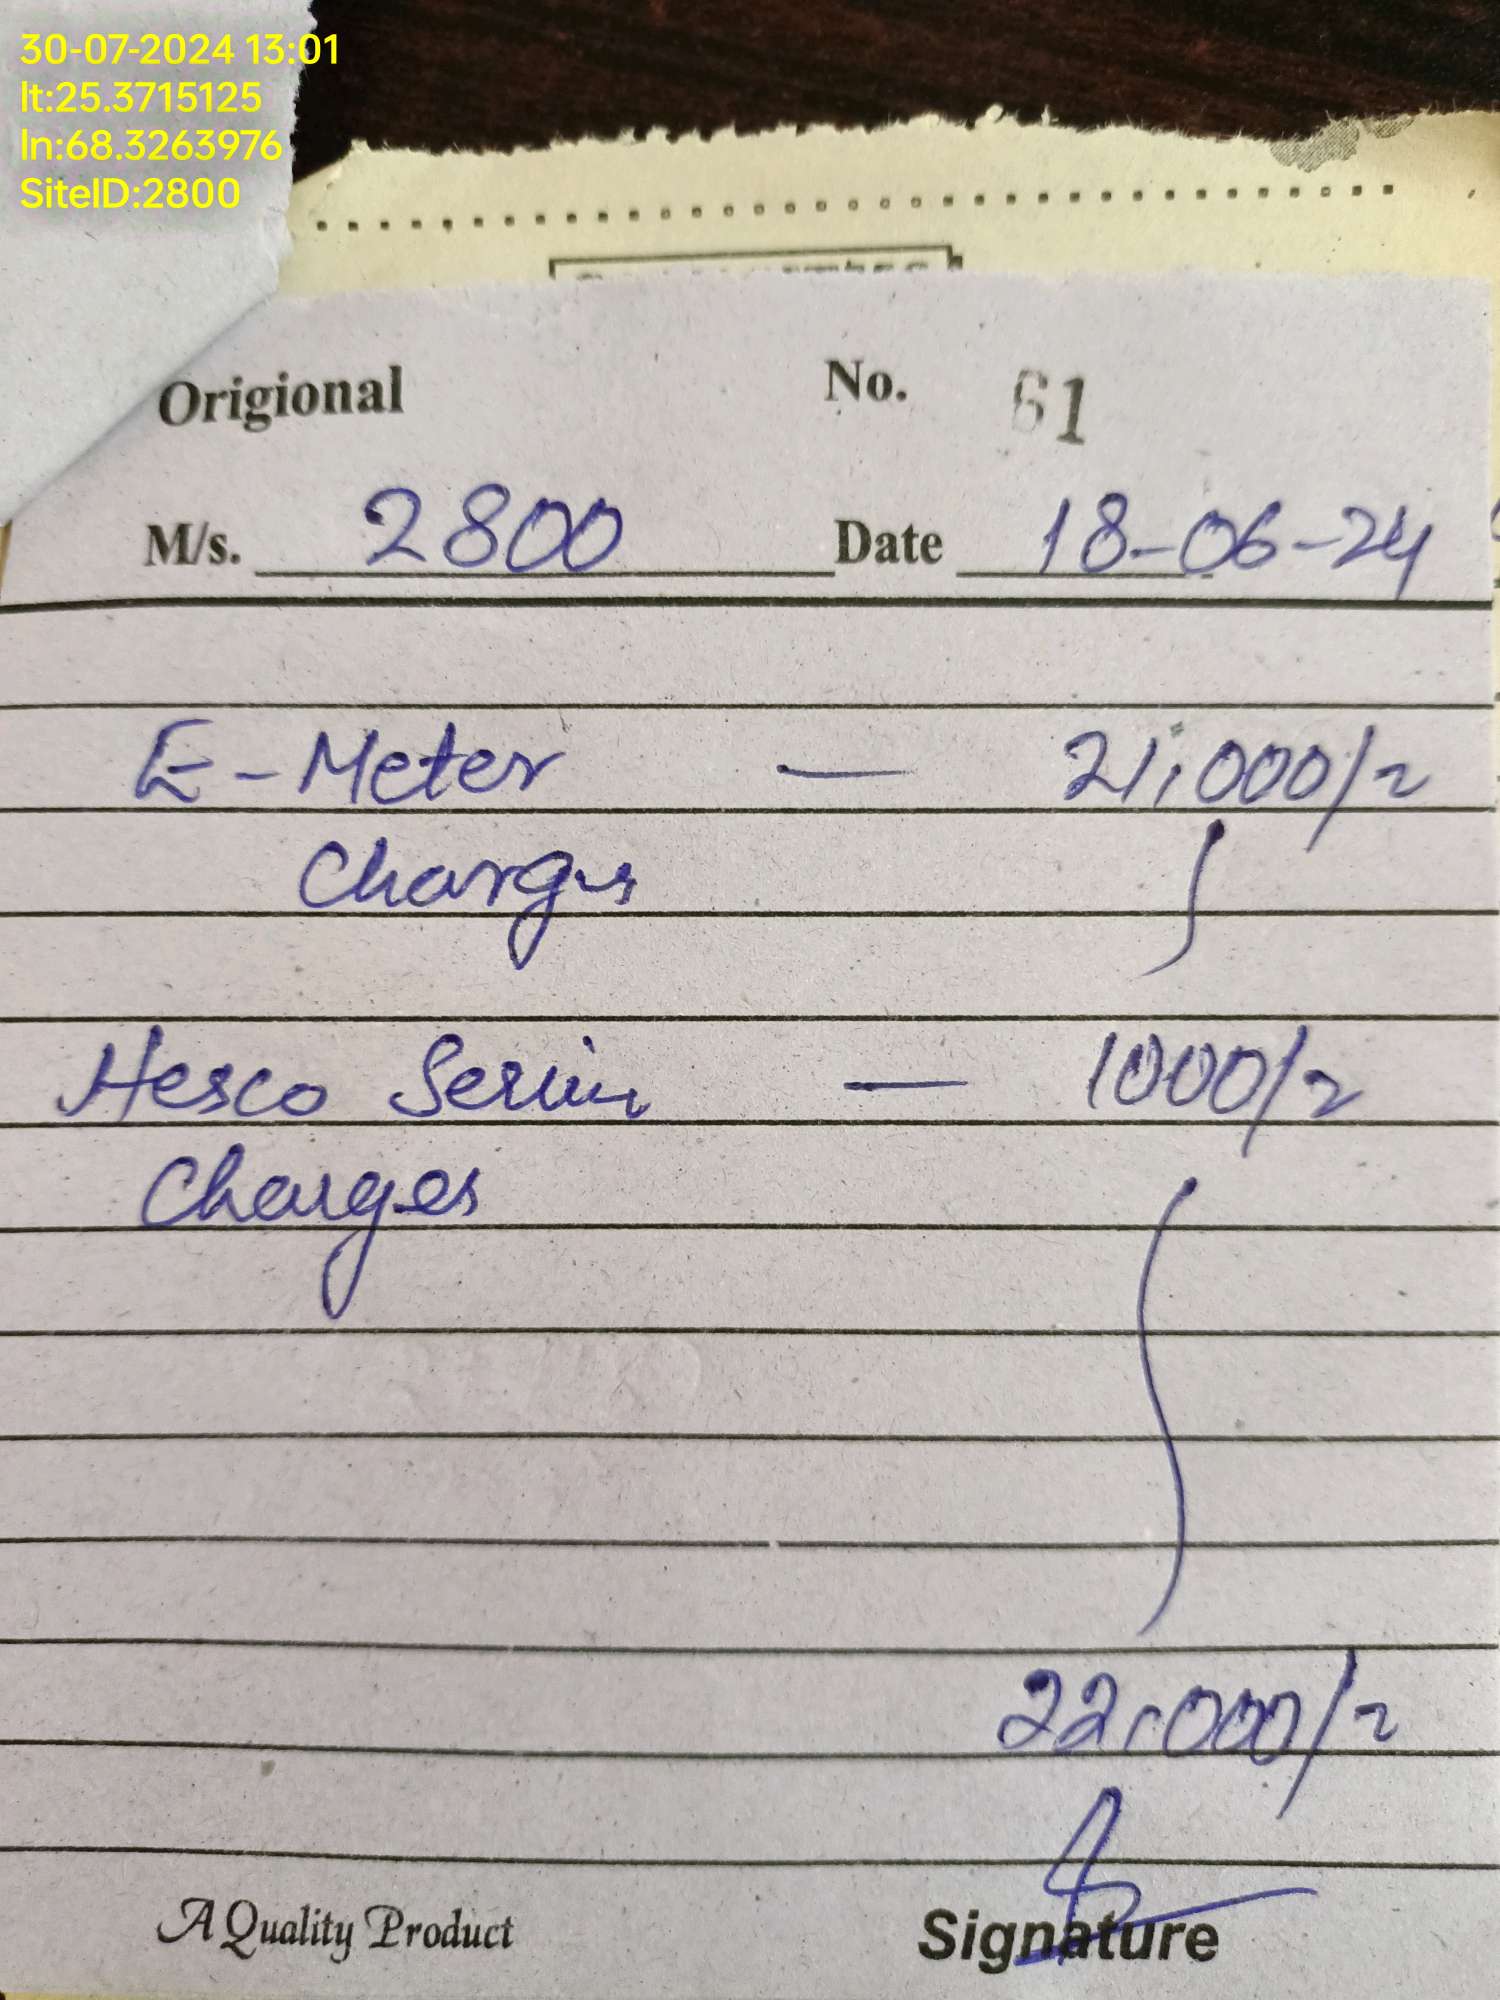 30-07-2024 13:01
lt:25.3715125
ln:68.3263976
SiteID:2800
Origional No. 61
M/s. 2800 Date 18-06-24
E-Meter — 21,000/=
Charges
Hesco Servin — 1000/=
Charges
22,000/=
A Quality Product Signature